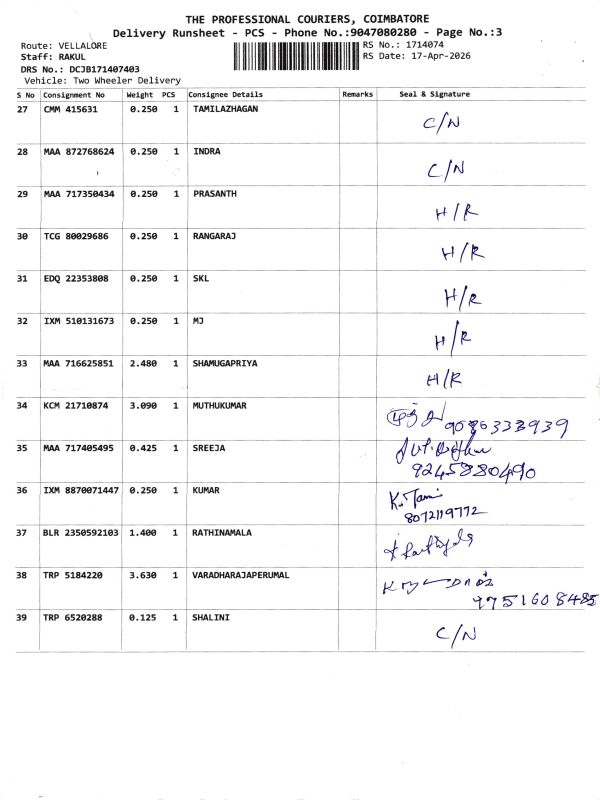 THE PROFESSIONAL COURIERS, COIMBATORE
Delivery Runsheet - PCS - Phone No.:9047080280 - Page No.:3
Route: VELLALORE RS No.: 1714074
Staff: RAKUL RS Date: 17-Apr-2026
DRS No.: DCJB171407403
Vehicle: Two Wheeler Delivery
S No Consignment No Weight PCS Consignee Details Remarks Seal & Signature
27 CMM 415631 0.250 1 TAMILAZHAGAN C/N
28 MAA 872768624 0.250 1 INDRA C/N
29 MAA 717350434 0.250 1 PRASANTH H/R
30 TCG 80029686 0.250 1 RANGARAJ H/R
31 EDQ 22353808 0.250 1 SKL H/R
32 IXM 510131673 0.250 1 MJ H/R
33 MAA 716625851 2.480 1 SHAMUGAPRIYA H/R
34 KCM 21710874 3.090 1 MUTHUKUMAR
35 MAA 717405495 0.425 1 SREEJA
9245880490
36 IXM 8870071447 0.250 1 KUMAR
8072119772
37 BLR 2350592103 1.400 1 RATHINAMALA
38 TRP 5184220 3.630 1 VARADHARAJAPERUMAL
9751608485
39 TRP 6520288 0.125 1 SHALINI C/N